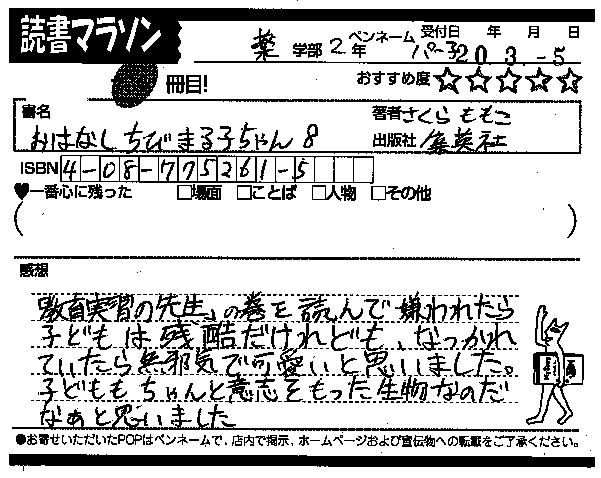 読書マラソン
薬 学部 2 年 ペンネーム パー子 受付日 年 月 日
20 3.-5
冊目! おすすめ度 ☆☆☆☆☆
書名 おはなしちびまる子ちゃん 8
著者 さくら ももこ
出版社 集英社
ISBN 4-08-775261-5
♥一番心に残った □場面 □ことば □人物 □その他
( )
感想
「教育実習の先生」の巻を読んで嫌われたら
子どもは残酷だけれども、なつかれ
ていたら無邪気で可愛いと思いました。
子どももちゃんと意志をもった生物なのだ
なぁと思いました
●お寄せいただいたPOPはペンネームで、店内で掲示、ホームページおよび宣伝物への転載をご了承ください。